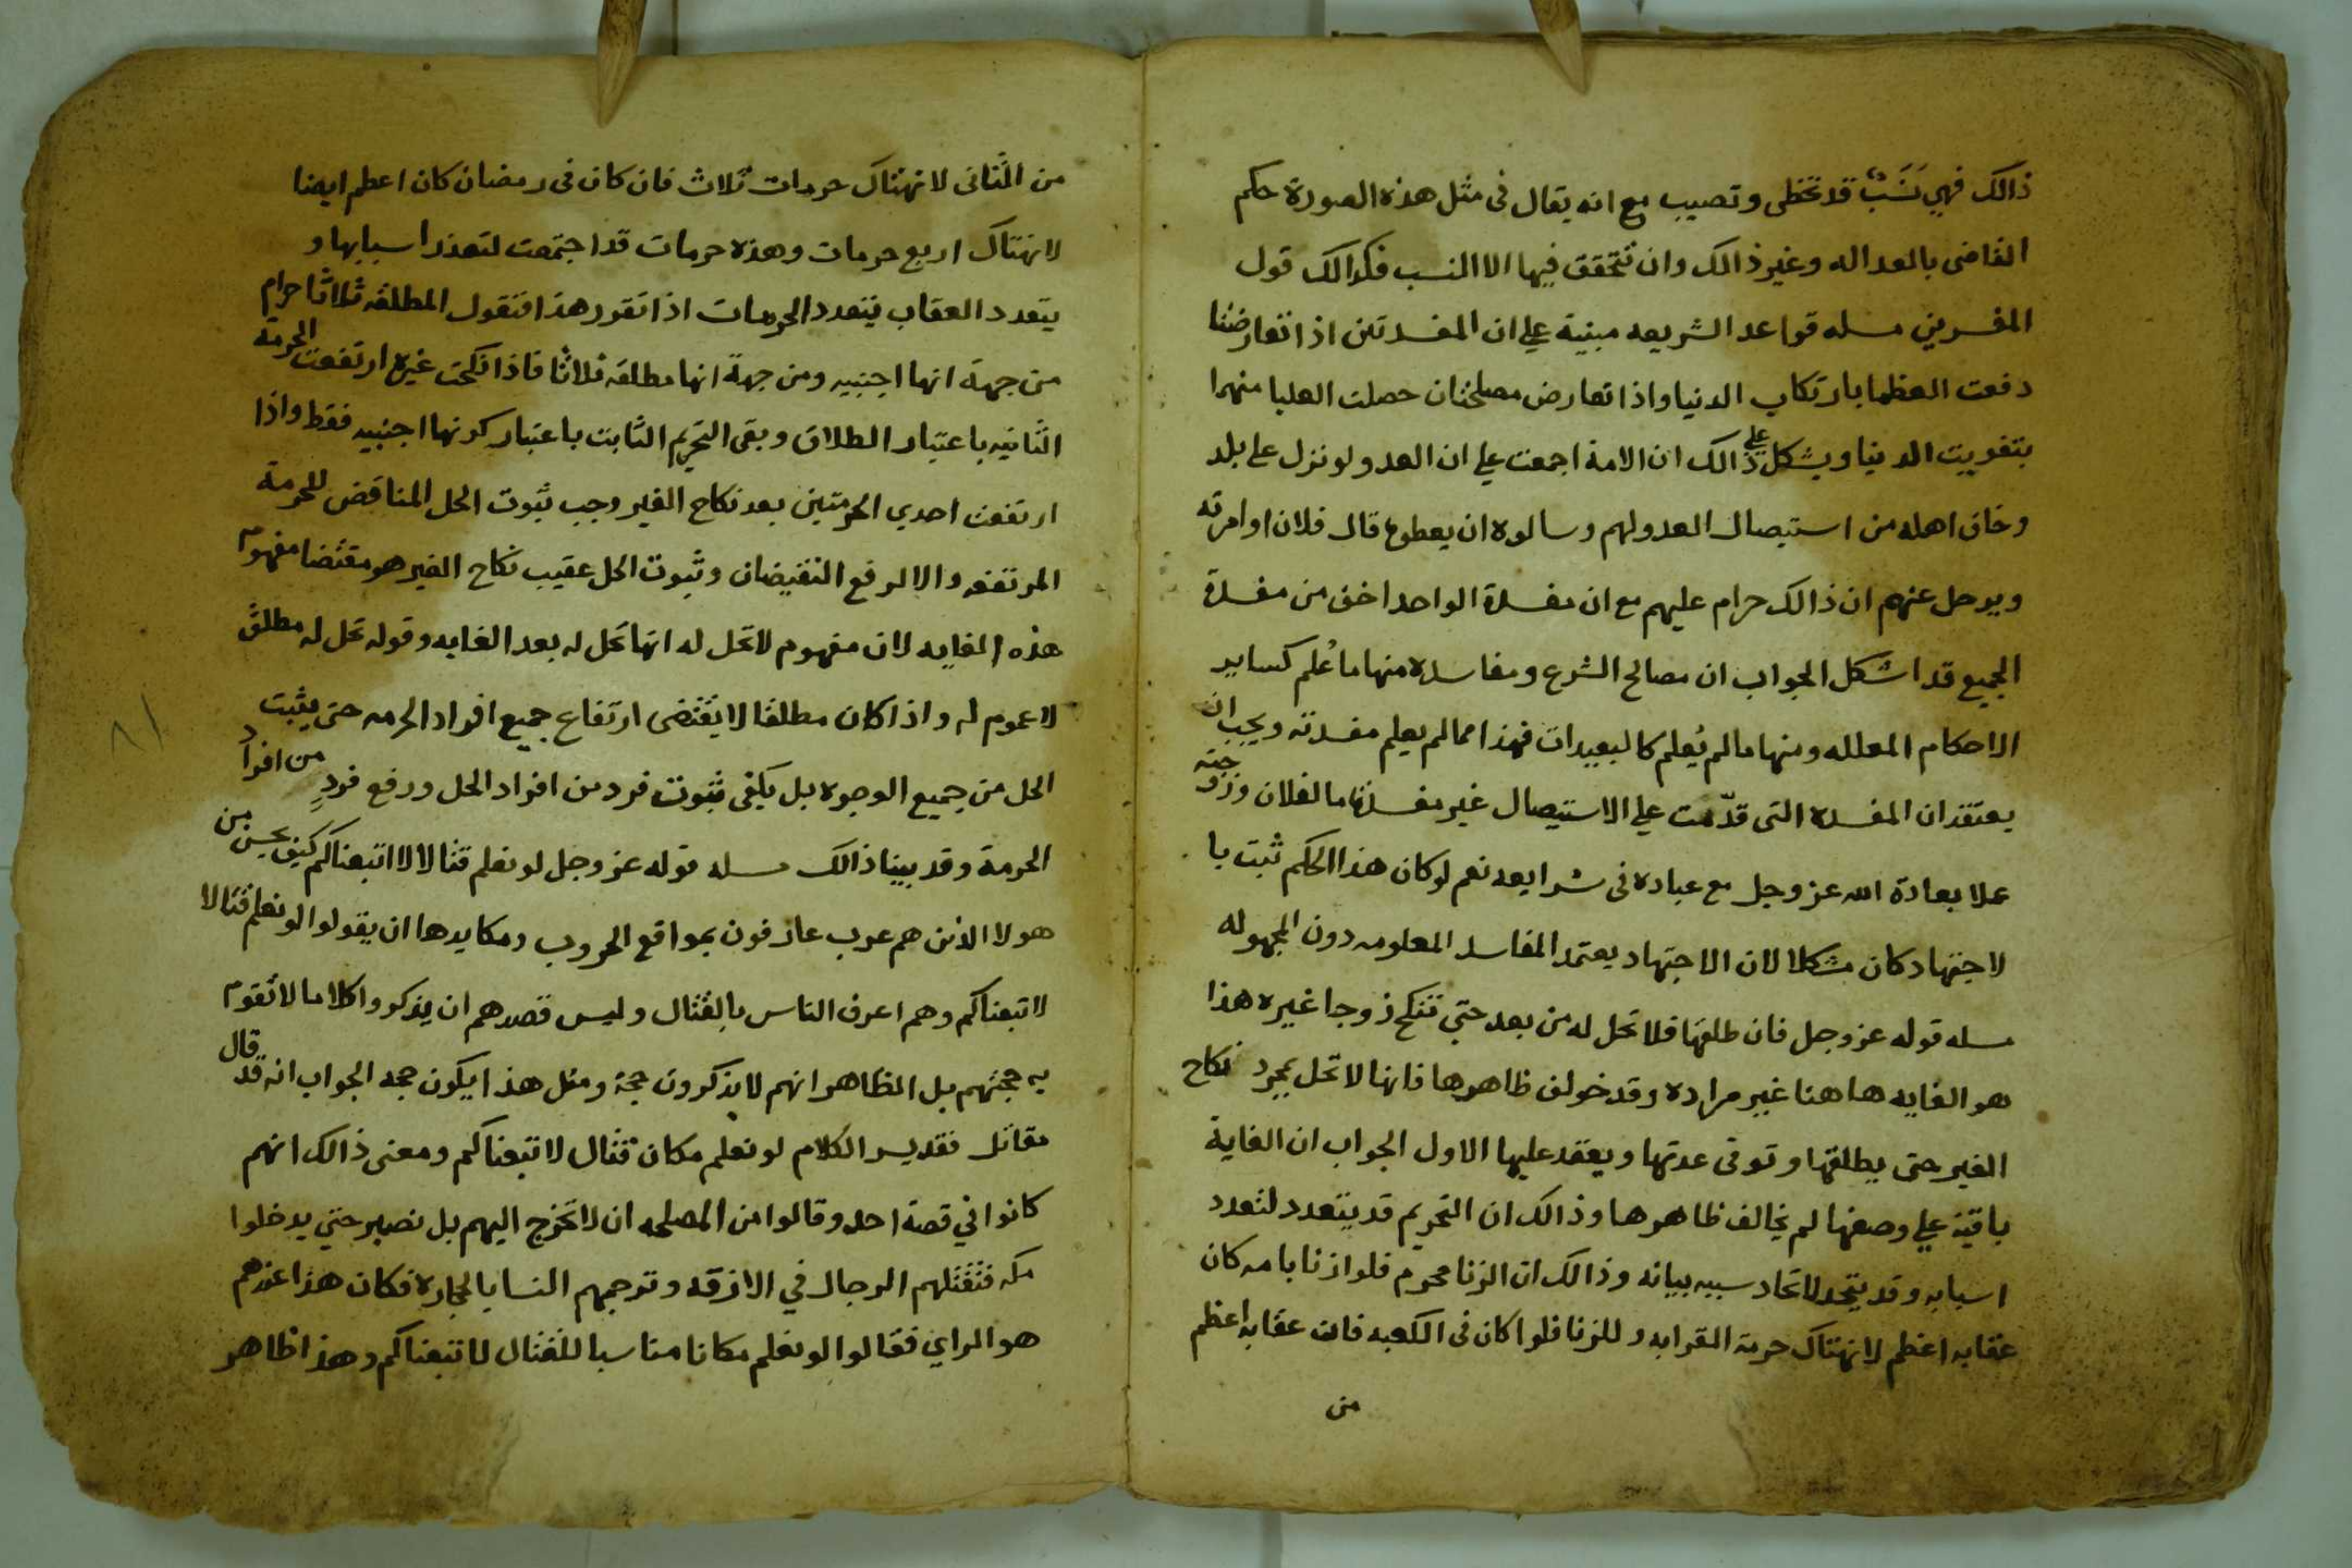 ذالك فهي نسب قد تخطى وتصيب مع انه يقال فى مثل هذه الصورة حكم
القاضى بالعداله وغير ذالك وان تتحقق فيها الا النسب فكذالك قول
المفسرين مسله قواعد الشريعه مبنية على ان المفسدتين اذا تعارضتا
دفعت العظما بارتكاب الدنيا واذا تعارض مصلحتان حصلت العليا منهما
بتفويت الدنيا ويشكل على ذالك ان الامة اجمعت على ان العدو لو نزل على بلد
وخاف اهله من استيصال العدو لهم وسالوه ان يعطوع قال فلان او امرته
ويرحل عنهم ان ذالك حرام عليهم مع ان مفسدة الواحد اخف من مفسدة
الجميع قد اشكل الجواب ان مصالح الشرع ومفاسده منها ما عُلم كساير
الاحكام المعلله ومنها ما لم يُعلم كالبعيدات فهذا مما لم يعلم مفسدته ويجب ان
يعتقد ان المفسده التى قدّمت على الاستيصال غير مفسدة مال فلان وزوجته
عملا بعادة الله عز وجل مع عباده فى شرايعه نعم لو كان هذا الحكم ثبت با
لاجتهاد كان مشكلا لان الاجتهاد يعتمد المفاسد المعلومه دون المجهوله
مسله قوله عز وجل فان طلقها فلا تحل له من بعد حتي تنكح زوجا غيره هذا
هو الغايه هاهنا غير مراده وقد خولف ظاهرها فانها لا تحل بمجرد نكاح
الغير حتى يطلقها وتوفى عدتها ويعقد عليها الاول الجواب ان الغاية
باقية على وصفها لم يخالف ظاهرها وذالك ان التحريم قد يتعدد لتعدد
اسبابه وقد يتحد لاتحاد سببه بيانه وذالك ان الزنا محرم فلو ازنا بامه كان
عقابه اعظم لانهتاك حرمة القرابه وللزنا فلو كان فى الكعبه فان عقابه اعظم
من
من الثانى لانهتاك حرمات ثلاث فان كان فى رمضان كان اعظم ايضا
لانهتاك اربع حرمات وهذه حرمات قد اجتمعت لتعدد اسبابها و
يتعدد العقاب بتعدد الحرمات اذا تقرر هذا فنقول المطلقه ثلاثا حرام
من جهة انها اجنبيه ومن جهة انها مطلقه ثلاثا فاذا نكحت غيره ارتفعت الحرمة
الثانيه باعتبار الطلاق وبقى التحريم الثابت باعتبار كونها اجنبيه فقط واذا
ارتفعت احدي الحرمتين بعد نكاح الغير وجب ثبوت الحل المناقض للحرمة
المرتفعه والا لرفع النقيضان وثبوت الحل عقيب نكاح الغير هو مقتضا مفهوم
هذه الغايه لان مفهوم لا تحل له انها تحل له بعد الغايه وقوله تحل له مطلق
لا عموم له واذا كان مطلقا لا يقتضى ارتفاع جميع افراد الحرمه حتى يثبت
الحل من جميع الوجوه بل يكفى ثبوت فرد من افراد الحل ورفع فردٍ من افراد
الحرمة وقد بينا ذالك مسله قوله عز وجل لو نعلم قتالا لا اتبعناكم كيف يحسن من
هولا الذين هم عرب عارفون بمواقع الحروب ومكايدها ان يقولوا لو نعلم قتالا
لاتبعناكم وهم اعرف الناس بالقتال وليس قصدهم ان يذكروا كلاما لا تقوم
به حجتهم بل الظاهر انهم لا يذكرون حجة ومثل هذا يكون حجه الجواب انه قد قال
مقاتل فقدير الكلام لو نعلم مكان قتال لاتبعناكم ومعنى ذالك انهم
كانوا في قصة احد وقالوا من المصلحه ان لا تخرج اليهم بل نصبر حتي يدخلوا
مكه فتقتلهم الرجال في الازقه وترجمهم النسا بالحجارة فكان هذا عندهم
هو الراي فقالوا لو نعلم مكانا مناسبا للقتال لاتبعناكم وهذا ظاهر
٨١